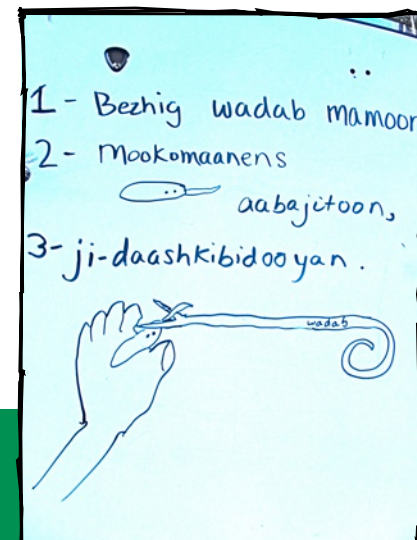 1- Bezhig wadab mamoon
2- Mookomaanens
aabajitoon,
3- ji-daashkibidooyan.
wadab